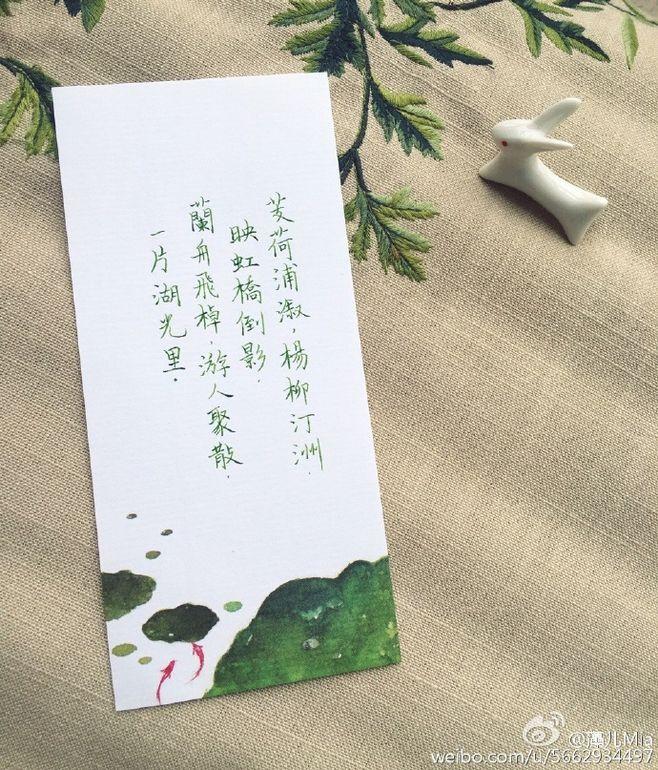 芰荷浦溆，楊柳汀洲，
映虹橋倒影，
蘭舟飛棹，游人聚散，
一片湖光里。
@藻儿Mia
weibo.com/u/5662934497